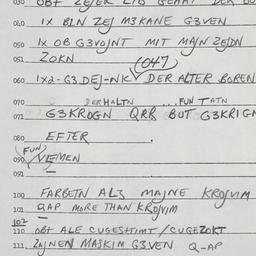 030 OBT ZEJER LIB GEHAT DER BO
040 IX BIN ZEJ M3KANE G3VEN
050 IX OB G3VOJNT MIT MAJN ZEJDN
051 ZOKN
(047)
060 1X2-G3 DEJ-NK DER ALTER BOREN
070 DERHALTN ...FUN TATN
071 G3KROGN QRR BUT G3KRIGN
080 EFTER.
FUN
090 VLEMEN
100 FARBETN ALZ MAJNE KROJVIM
101 QAP MORE THAN KROJVIM
102
110 OBT ALE CUGESHTIMT / CUGEZOKT
111. ZAJNEN MASKIM G3VEN Q-AP